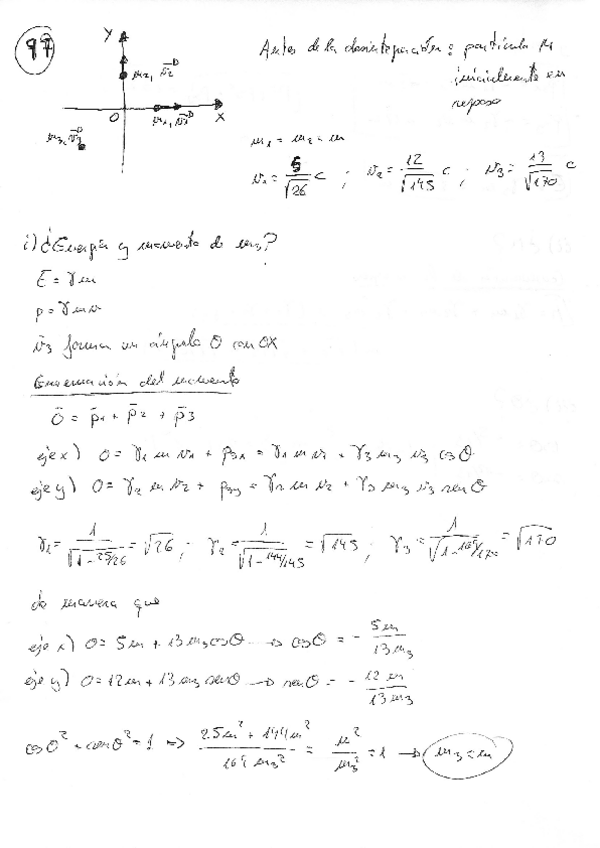 97
Y
m₂, v̄₂
O
m₁, v̄₁
X
m₃, v̄₃
Antes de la desintegración: partícula
inicialmente en
reposo
m₁ = m₂ = m
v₁ = 5/√26 c ; v₂ = 12/√145 c ; v₃ = 13/√170 c
i) ¿Energía y momento de m₃?
E = γm
p = γmv
v̄₃ forma un ángulo θ con OX
Conservación del momento
0̄ = p̄₁ + p̄₂ + p̄₃
eje x) 0 = γ₁ m v₁ + p₃ₓ = γ₁ m v₁ + γ₃ m₃ v₃ cos θ
eje y) 0 = γ₂ m v₂ + p₃y = γ₂ m v₂ + γ₃ m₃ v₃ sen θ
γ₁ = 1/√(1-25/26) = √26 ; γ₂ = 1/√(1-144/145) = √145 ; γ₃ = 1/√(1-169/170) = √170
de manera que
eje x) 0 = 5m + 13 m₃ cos θ → cos θ = - 5m/13m₃
eje y) 0 = 12m + 13 m₃ sen θ → sen θ = - 12m/13m₃
cos θ² + sen θ² = 1 ⇒ (25m² + 144m²)/169 m₃² = m²/m₃² = 1 → m₃ = m